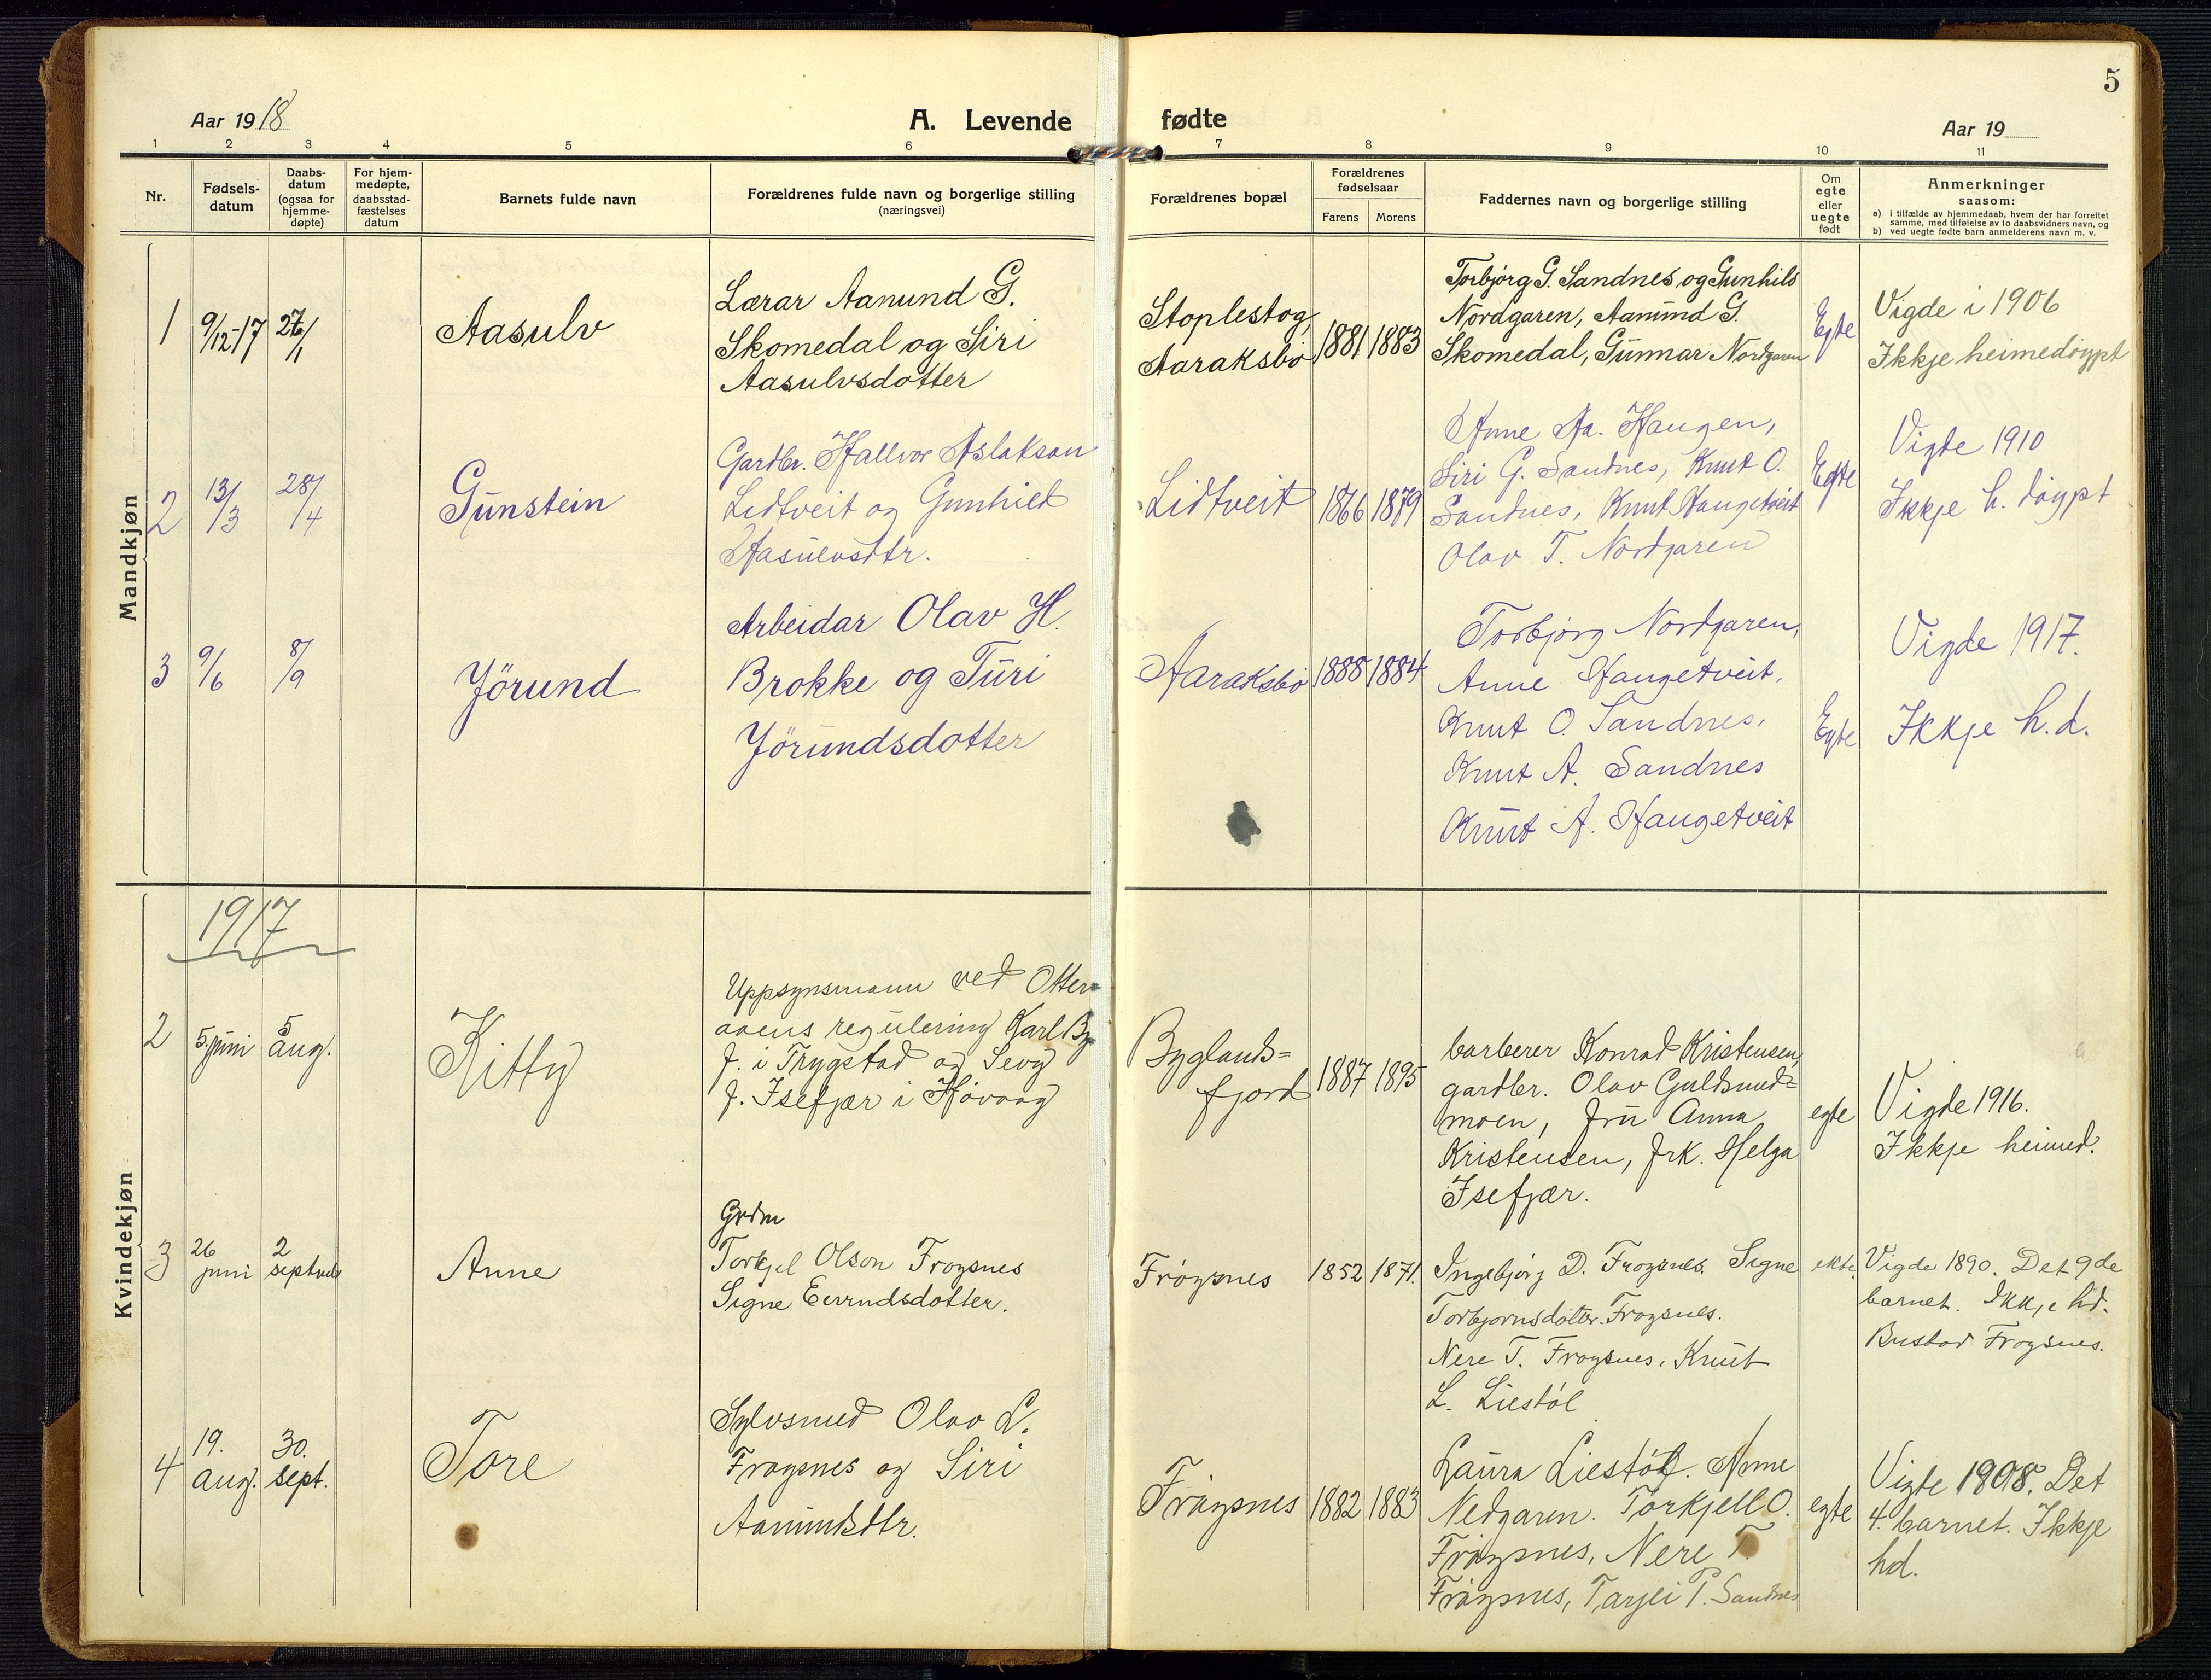 5
Aar 1918
A. Levende fødte
Aar 19
1 2 3 4 5 6 7 8 9 10 11
Nr.
Fødsels-
datum
Daabs-
datum
(ogsaa for
hjemme-
døpte)
For hjem-
medøpte,
daabsstad-
fæstelses
datum
Barnets fulde navn
Forældrenes fulde navn og borgerlige stilling
(næringsvei)
Forældrenes bopæl
Forældrenes
fødselsaar
Farens Morens
Faddernes navn og borgerlige stilling
Om
egte
eller
uegte
født
Anmerkninger
saasom:
a) i tilfælde av hjemmedaab, hvem der har forrettet
samme, med tilføielse av to daabsvidners navn, og
b) ved uegte fødte barn anmelderens navn m. v.
Mandkjøn
1
9/12-17
27/1
Aasulv
Lærar Aanund G.
Skomedal og Siri
Aasulvsdotter
Stoplestog,
Aaraksbø
1881 1883
Torbjørg G. Sandnes og Gunhild
Nordgaren, Aanund G.
Skomedal, Gunnar Nordgaren
Egte
Vigde i 1906
Ikkje heimedøypt
2
13/3
28/4
Gunstein
Gardbr. Hallvor Aslakson
Lidtveit og Gunhild
Aasulvsdtr.
Lidtveit
1866 1879
Anne Aa. Haugen,
Siri G. Sandnes, Knut O.
Sandnes, Knut Haugetveit
Olav T. Nordgaren
Egte
Vigde 1910
Ikkje h. døypt
3
9/6
8/9
Jørund
Arbeidar Olav H.
Brokke og Turi
Jørundsdotter
Aaraksbø
1888 1884
Torbjørg Nordgaren,
Anne Haugetveit,
Knut O. Sandnes,
Knut A. Sandnes
Knut A. Haugetveit
Egte
Vigde 1917.
Ikkje h.d.
Kvindekjøn
1917
2
5. juni
5 aug.
Kitty
Uppsynsmann ved Otter-
aaens regulering Karl
J. i Trygstad og Sevy
J. Isefjær i Høvaag
Byglands=
fjord
1887 1895
barberer Konrad Kristensen,
gardbr. Olav Guldsmed=
moen, fru Anna
Kristensen, frk. Helga
Isefjær.
egte
Vigde 1916.
Ikkje heimed.
3
26 juni
2
Anne
Grdm
Torkjel Olson Frøysnes
Signe
Frøysnes
1852 1871.
Ingebjørg D. Frøysnes. Signe
Torbjørnsdotter Frøysnes.
Nere T. Frøysnes, Knut
L. Liestøl
ekte.
Vigde 1890. Det 9de
barnet. Ikkje hd.
Bustad Frøysnes.
4
19. aug.
30. sept.
Tore
Sylvsmed Olav L.
Frøysnes og Siri
Aanundsdtr.
Frøysnes
1882 1883
Laura Liestøl. Anne
Nedgaren. Torkjell O.
Frøysnes, Nere T.
Frøysnes, Tarjei P. Sandnes
egte
Vigde 1908. Det
4. barnet. Ikkje
hd.